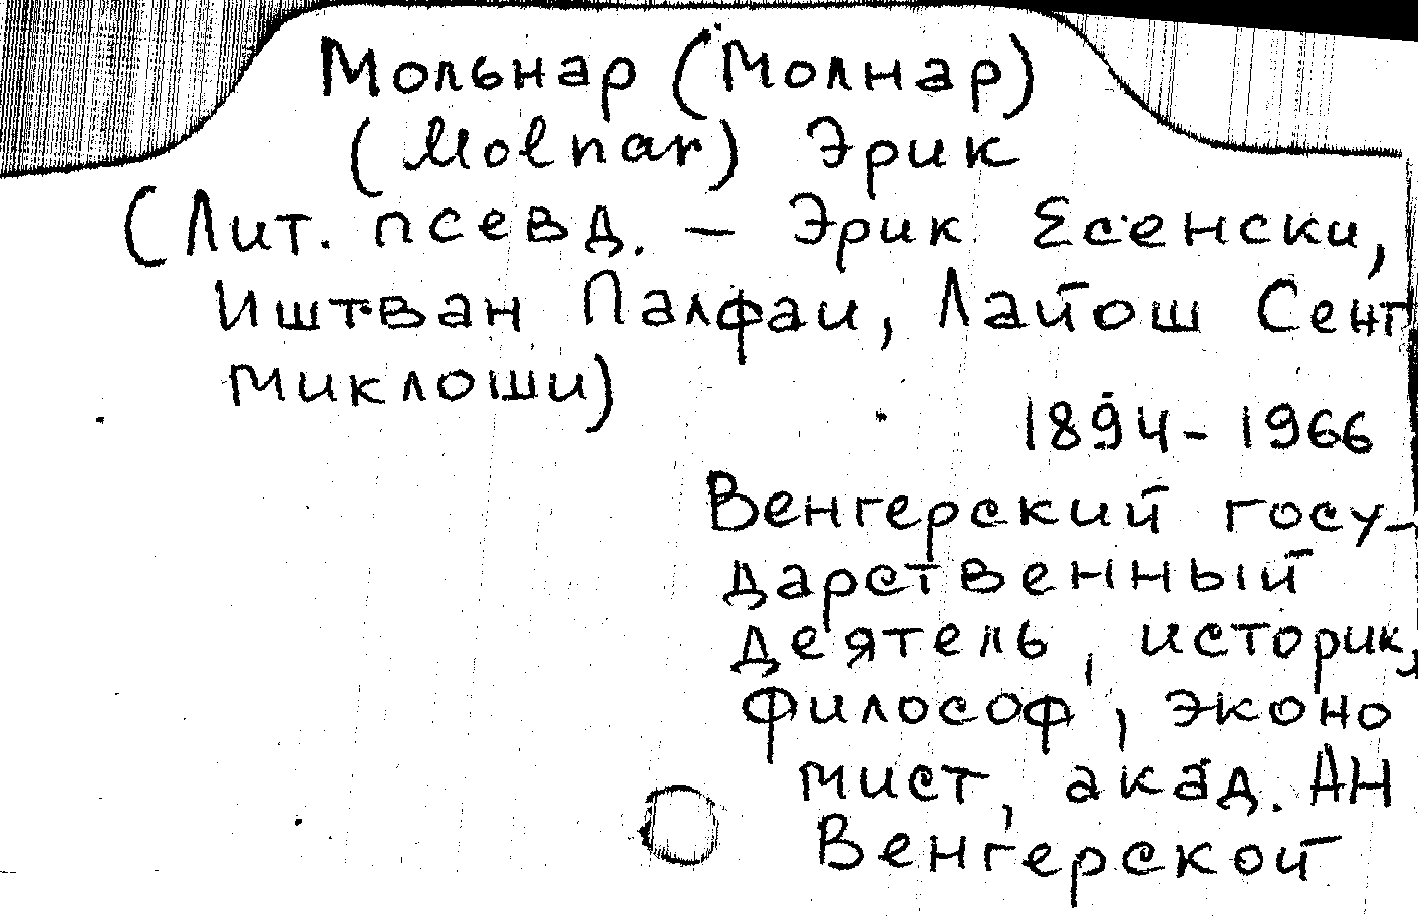 Мольнар (Молнар)
(Molnar) Эрик
(Лит. псевд. – Эрик Есенски,
Иштван Палфаи, Лайош Сент
миклоши)
1894-1966
Венгерский госу-
дарственный
деятель, историк,
философ, эконо
мист, акад. АН
Венгерской